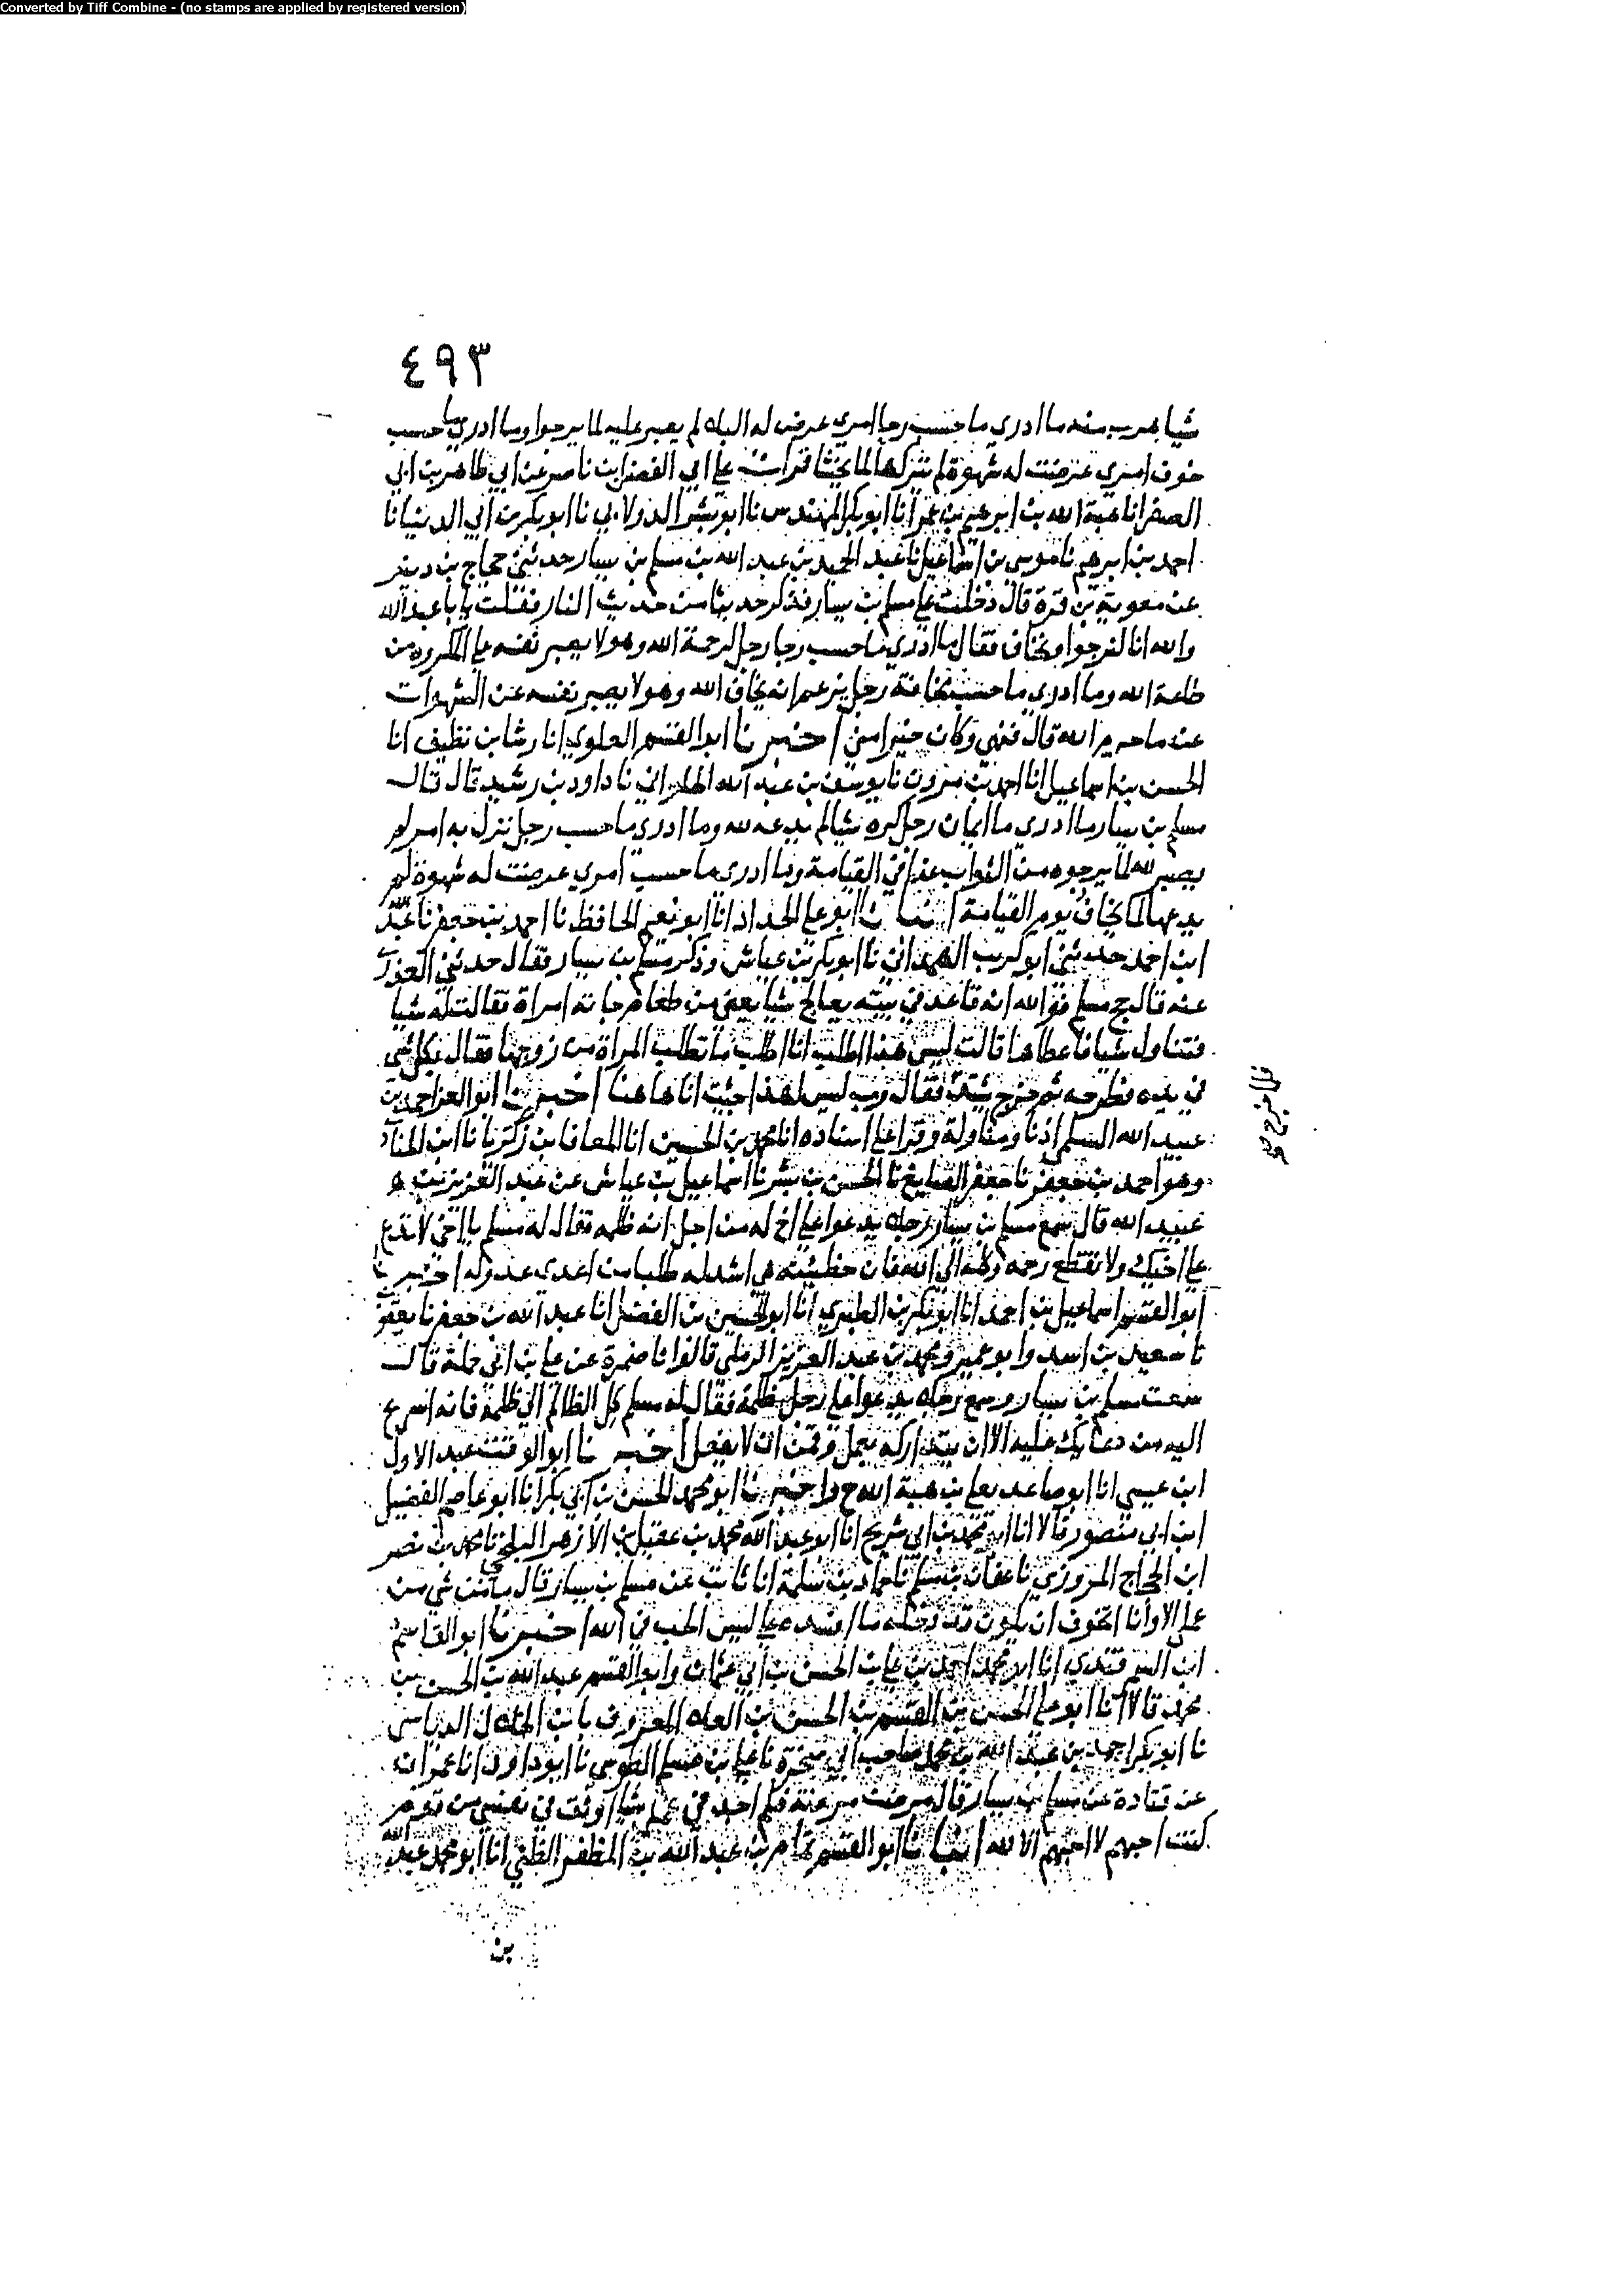 Converted by Tiff Combine - (no stamps are applied by registered version)
٤٩٣
شيا هرب منه ما ادري ما حسب رجا امرى عرض له البلاء لم يصبر عليه لما يرجوا وما ادري ما حسب
خوف امرى عرضت له شهوة لم يتركها لما يخشا قرات على ابي الفضل بن ناصر عن ابي طاهر بن ابي
الصقر انا هبة الله بن ابرهيم بن عمر انا ابو بكر المهندس نا ابو بشر الدولابي نا ابو بكر بن ابي الدنيا نا
احمد بن ابرهيم نا موسى بن اسماعيل نا عبد الحميد بن عبد الله بن مسلم بن يسار حدثني حجاج بن دينر
عن معوية بن قرة قال دخلت على مسلم بن يسار فذكر حديثا من حديث النار فقلت يا با عبد الله
والله انا لنرجوا ونخاف فقال ما ادري ما حسب رجا رجل لرحمة الله وهو لا يصبر نفسه على المكروه من
طاعة الله وما ادرى ما حسب مخافة رجل يزعم انه يخاف الله وهو لا يصبر نفسه عن الشهوات
عند ما حرم الله قال فقهي وكان خيرا مني اخبرنا ابو القسم العلوي انا رشا بن نظيف انا
الحسن بن اسماعيل انا احمد بن مرون نا يوسف بن عبد الله الحلواني نا داود بن رشيد قال قال
مسلم بن يسار ما ادري ما ايمان رجل كره شيا لم يدعه لله وما ادري ما حسب رجل نزل به امر لم
يصبر لله لما يرجوه من الثواب غدا في القيامة وما ادرى ما حسب امرى عرضت له شهوة لم
يدعها لما يخاف يوم القيامة انبانا ابو علي الحداد انا ابو نعيم الحافظ نا احمد بن جعفر نا عبد الله
ابن احمد حدثني ابو كريب الهمداني نا ابو بكر بن عياش وذكر مسلم بن يسار فقال حدثني
عنه قال حج مسلم فوالله انه قاعد في بيته يعالج شيا يعني من طعام جاته امراة فقالت له شيا
فتناول شيا فاعطاها قالت ليس هذا اطلب انا اطلب ما تطلب المراة من زوجها فقال بكل شي
في يده فطرحه ثم خرج يشتد فقال رب ليس لهذا جيت انا ها هنا اخبرنا ابو العز احمد بن
عبيد الله السلمي اذنا ومناولة وقرا علي اسناده انا محمد بن الحسين انا المعافا بن زكريا نا ابن المناد
وهو احمد بن جعفر نا جعفر الصايغ نا الحسن بن بشر نا اسماعيل بن عياش عن عبد العزيز بن
عبيد الله قال سمع مسلم بن يسار رجلا يدعوا على اخ له من اجل انه ظلمه فقال له مسلم يا اخي لا تدع
على اخيك ولا تقطع رحمه وكله الى الله فان خطيئته هي اشد له طلبا من اعدى عدو له اخبرنا
ابو القسم اسماعيل بن احمد انا ابو بكر بن الطبري انا ابو الحسين بن الفضل انا عبد الله بن جعفر نا يعقوب
نا سعيد بن اسد وابو عمير ومحمد بن عبد العزيز الرملي قالوا نا ضمرة عن علي بن ابي حملة قال
سمعت مسلم بن يسار وسمع رجلا يدعوا على رجل ظلمه فقال له مسلم كل الظالم الى ظلمه فانه اسرع
اليه من دعايك عليه الا ان يتداركه بعمل وقمن ان لا يفعل اخبرنا ابو الوقت عبد الاول
ابن عيسى انا ابو صاعد يعلى بن هبة الله ح واخبرنا ابو محمد الحسن بن ابي بكر انا ابو عاصم الفضيل
ابن ابي منصور قالا انا ابو محمد بن ابي شريح انا ابو عبد الله محمد بن عقيل بن الازهر البلخي نا محمد بن نصر
ابن الحجاج المروزي نا عفان بن مسلم نا حماد بن سلمة انا ثابت عن مسلم بن يسار قال ما من شي من
عملي الا وانا اتخوف ان يكون قد دخله ما افسده علي ليس الحب في الله اخبرنا ابو القاسم
ابن السمرقندي انا ابو محمد احمد بن علي بن الحسن بن ابي عثمان وابو القسم عبد الله بن الحسن بن
محمد قالا انا ابو علي الحسن بن القسم بن الحسن بن العلاء المعروف بابن الخلال الدباسي
نا ابو بكر احمد بن عبد الله بن محمد صاحب ابي صخرة نا علي بن مسلم الطوسي نا ابو داود نا عمران
عن قتادة عن مسلم بن يسار قال مرضت مرضة فلم اجد في عملي شيا اوثق في نفسي من قوم
كنت احبهم لا احبهم الا لله انبانا ابو القسم تمام بن عبد الله بن المظفر الظني انا ابو محمد عبد الله
بن